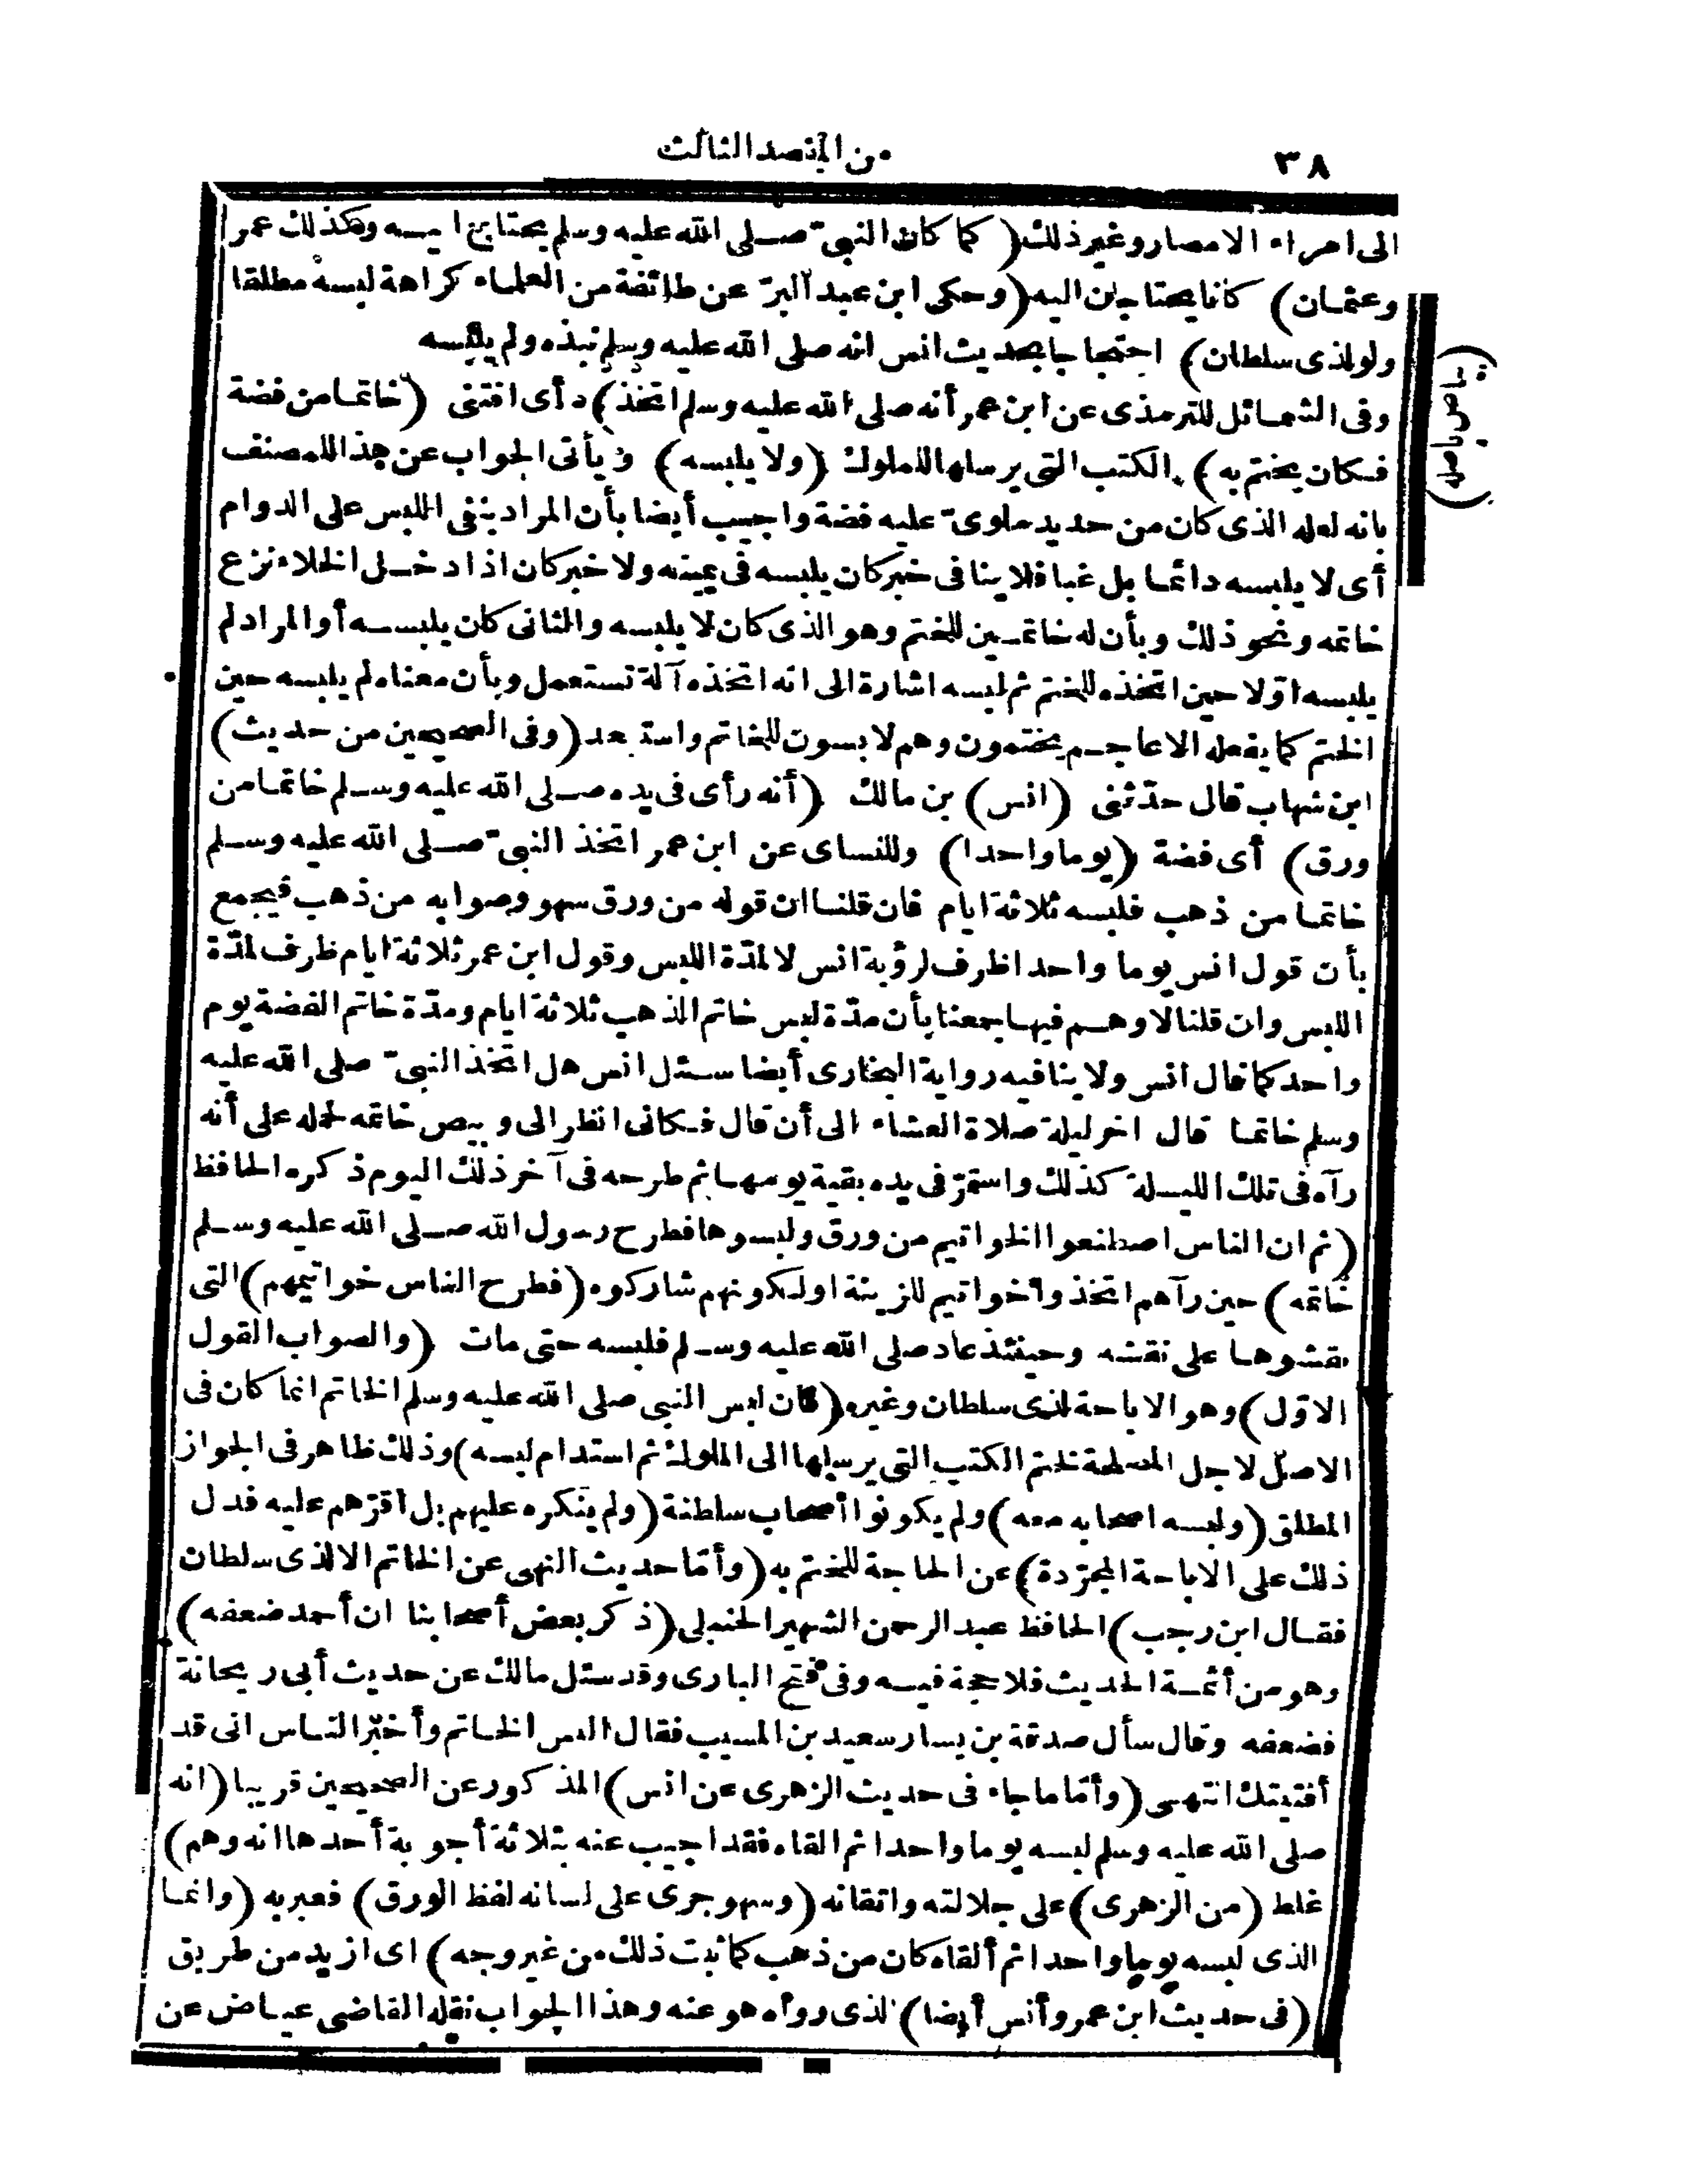 ٣٨
من المقصد الثالث
الى امراء الامصار وغير ذلك ( كما كان النبي صلى الله عليه وسلم يحتاج اليه وكذلك عمر
وعثمان ) كانا يحتاجان اليه ( وحكى ابن عبد البر عن طائفة من العلماء كراهة لبسه مطلقا
ولو لذى سلطان ) احتجاجا بحديث انس انه صلى الله عليه وسلم نبذه ولم يلبسه
وفى الشمائل للترمذى عن ابن عمر أنه صلى الله عليه وسلم اتخذ ) أى اقتنى ( خاتما من فضة
فكان يختم به ) الكتب التى يرسلها للملوك ( ولا يلبسه ) ويأتى الجواب عن هذا للمصنف
بانه لعله الذى كان من حديد ملوىّ عليه فضة واجيب أيضا بأن المراد بنفى اللبس على الدوام
أى لا يلبسه دائما بل غبا فلا ينافى خبر كان يلبسه فى يمينه ولا خبر كان اذا دخل الخلاء نزع
خاتمه ونحو ذلك وبأن له خاتمين للختم وهو الذى كان لا يلبسه والثانى كان يلبسه أو المراد لم
يلبسه اوّلا حين اتخذه للختم ثم لبسه اشارة الى انه اتخذه آلة تستعمل وبأن معناه لم يلبسه حين
الختم كما يفعله الاعاجم يختمون وهم لابسون للخاتم واستبعد ( وفى الصحيحين من حديث )
ابن شهاب قال حدّثنى ( انس ) بن مالك ( أنه رأى فى يده صلى الله عليه وسلم خاتما من
ورق ) أى فضة ( يوما واحدا ) وللنساى عن ابن عمر اتخذ النبىّ صلى الله عليه وسلم
خاتما من ذهب فلبسه ثلاثة ايام فان قلنا ان قوله من ورق سهو وصوابه من ذهب فيجمع
بأن قول انس يوما واحدا ظرف لرؤية انس لا لمدّة اللبس وقول ابن عمر ثلاثة ايام ظرف لمدّة
اللبس وان قلنا لا وهم فيها جمعنا بأن مدّة لبس خاتم الذهب ثلاثة ايام ومدّة خاتم الفضة يوم
واحد كما قال انس ولا ينافيه رواية البخارى أيضا سئل انس هل اتخذ النبىّ صلى الله عليه
وسلم خاتما قال اخر ليلة صلاة العشاء الى أن قال فكانى انظر الى وبيص خاتمه لحمله على أنه
رآه فى تلك الليلة كذلك واستمرّ فى يده بقية يومها ثم طرحه فى آخر ذلك اليوم ذكره الحافظ
( ثم ان الناس اصطنعوا الخواتيم من ورق ولبسوها فطرح رسول الله صلى الله عليه وسلم
خاتمه ) حين رآهم اتخذوا خواتيم للزينة او لكونهم شاركوه ( فطرح الناس خواتيمهم ) التى
نقشوها على نقشه وحينئذ عاد صلى الله عليه وسلم فلبسه حتى مات ( والصواب القول
الاوّل ) وهو الاباحة لذى سلطان وغيره ( فان لبس النبى صلى الله عليه وسلم الخاتم انما كان فى
الاصل لاجل المصلحة لختم الكتب التى يرسلها الى الملوك ثم استدام لبسه ) وذلك ظاهر فى الجواز
المطلق ( ولبسه اصحابه معه ) ولم يكونوا أصحاب سلطنة ( ولم ينكره عليهم بل أقرّهم عليه فدل
ذلك على الاباحة المجرّدة ) عن الحاجة للختم به ( وأمّا حديث النهى عن الخاتم الا لذى سلطان
فقال ابن رجب ) الحافظ عبد الرحمن الشهير الحنبلى ( ذكر بعض أصحابنا ان أحمد ضعفه )
وهو من أئمة الحديث فلا حجة فيه وفى فتح البارى وقد سئل مالك عن حديث أبى ريحانة
فضعفه وقال سأل صدقة بن يسار سعيد بن المسيب فقال البس الخاتم وأخبر الناس انى قد
أفتيتك انتهى ( وأمّا ما جاء فى حديث الزهرى عن انس ) المذكور عن الصحيحين قريبا ( انه
صلى الله عليه وسلم لبسه يوما واحدا ثم القاه فقد اجيب عنه بثلاثة أجوبة أحدها انه وهم )
غلط ( من الزهرى ) على جلالته واتقانه ( وسهو جرى على لسانه لفظ الورق ) فعبر به ( وانما
الذى لبسه يوما واحدا ثم ألقاه كان من ذهب كما ثبت ذلك من غير وجه ) اى ازيد من طريق
( فى حديث ابن عمر وأنس أيضا ) الذى رواه هو عنه وهذا الجواب نقله القاضى عياض عن